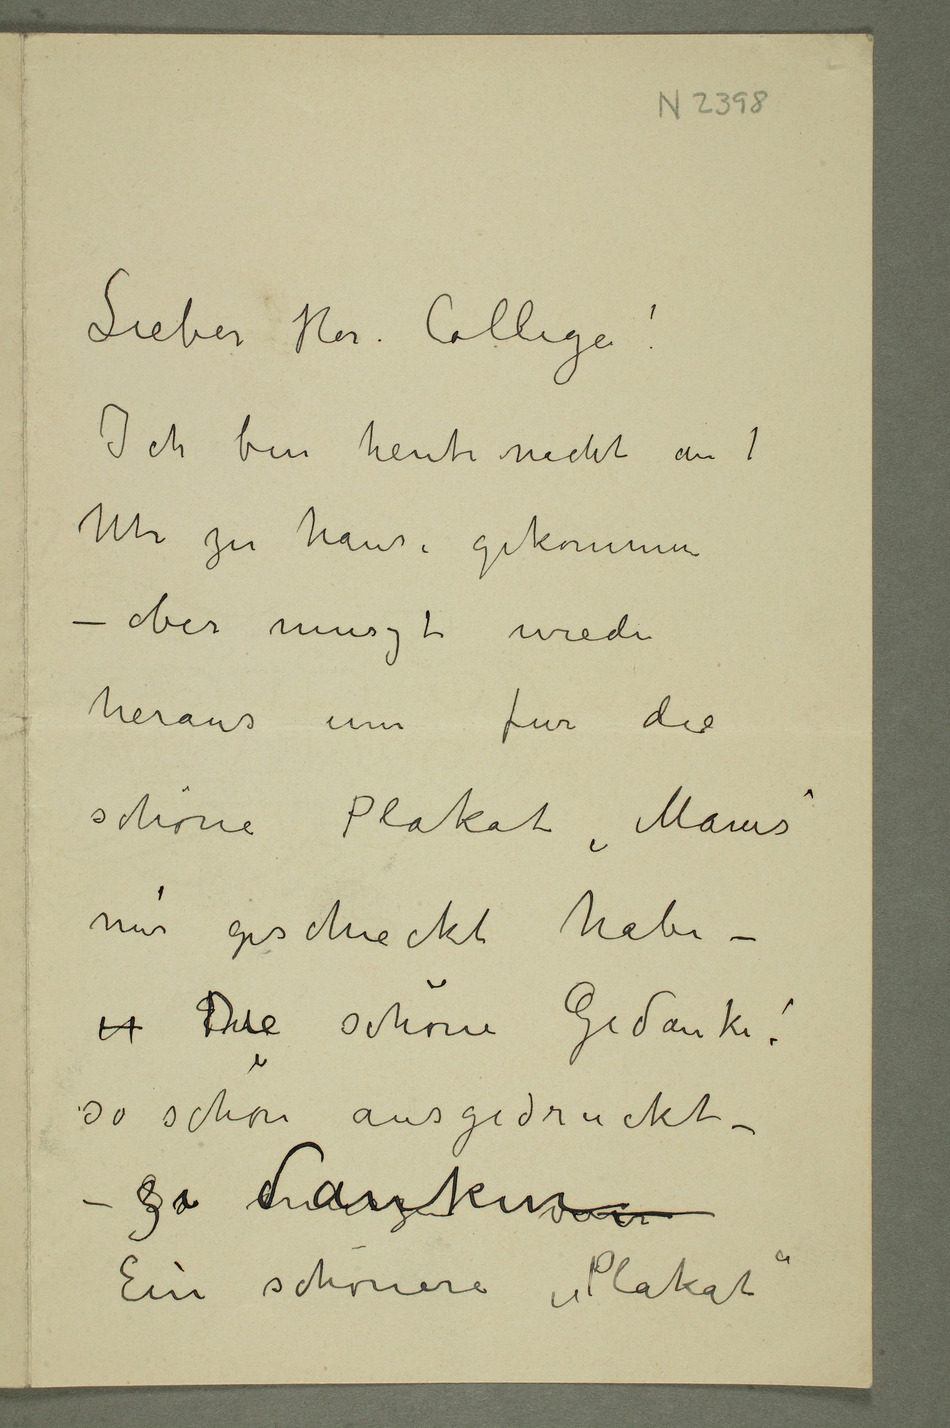 N 2398
Lieber Her. Collega!
Ich bin heute nacht um 1
Uhr zu hause gekommen
– aber muszte wieder
heraus um fur die
schöne Plakat „Mams“
mir geschieckt habe –
Die schöne Gedanke!
so schön ausgedruckt –
– zu danken
Ein schönere „Plakat“